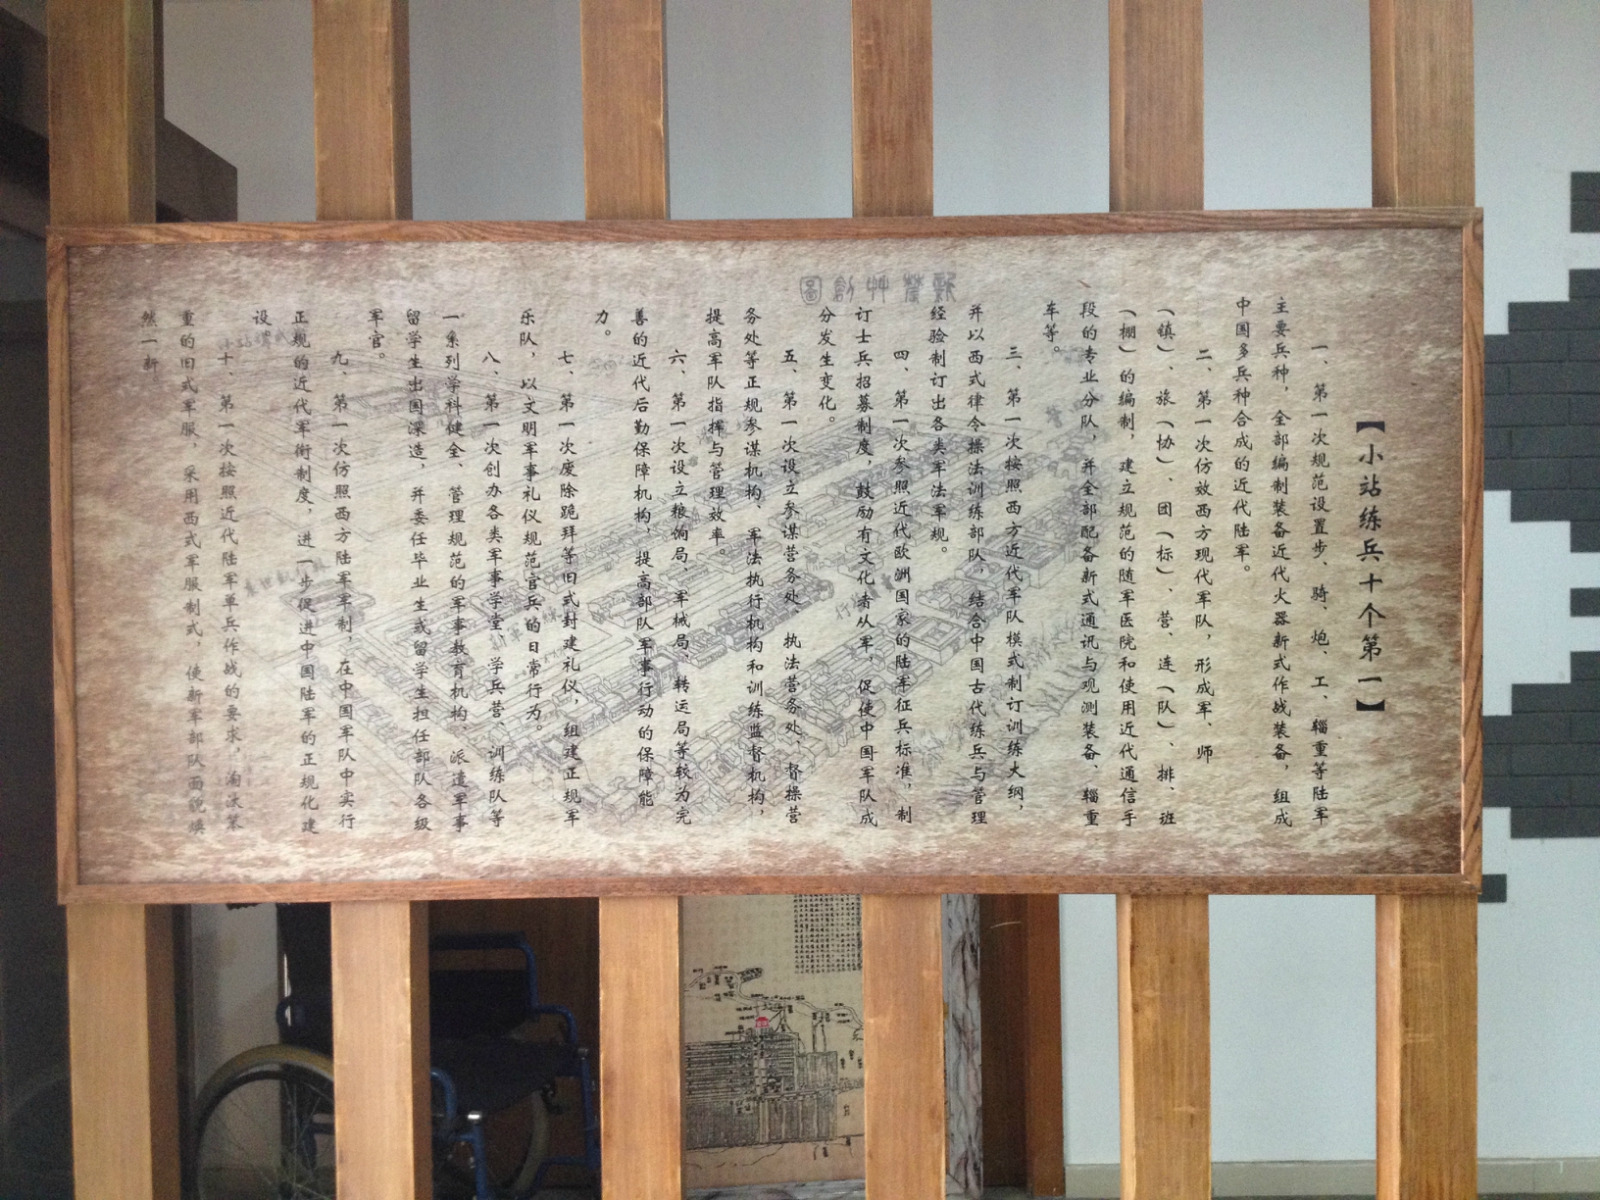 【小站练兵十个第一】
一、第一次规范设置步、骑、炮、工、辎重等陆军
主要兵种，全部编制装备近代火器新式作战装备，组成
中国多兵种合成的近代陆军。
二、第一次仿效西方现代军队，形成军、师
（镇）、旅（协）、团（标）、营、连（队）、排、班
（棚）的编制，建立规范的随军医院和使用近代通信手
段的专业分队，并全部配备新式通讯与观测装备、辎重
车等。
三、第一次按照西方近代军队模式制订训练大纲，
并以西式律令操法训练部队，结合中国古代练兵与管理
经验制订出各类军法军规。
四、第一次参照近代欧洲国家的陆军征兵标准，制
订士兵招募制度，鼓励有文化者从军，促使中国军队成
分发生变化。
五、第一次设立参谋营务处、执法营务处、督操营
务处等正规参谋机构、军法执行机构和训练监督机构，
提高军队指挥与管理效率。
六、第一次设立粮饷局、军械局、转运局等较为完
善的近代后勤保障机构，提高部队军事行动的保障能
力。
七、第一次废除跪拜等旧式封建礼仪，组建正规军
乐队，以文明军事礼仪规范官兵的日常行为。
八、第一次创办各类军事学堂、学兵营、训练队等
一系列学科健全、管理规范的军事教育机构，派遣军事
留学生出国深造，并委任毕业生或留学生担任部队各级
军官。
九、第一次仿照西方陆军军制，在中国军队中实行
正规的近代军衔制度，进一步促进中国陆军的正规化建
设。
十、第一次按照近代陆军单兵作战的要求，淘汰笨
重的旧式军服，采用西式军服制式，使新军部队面貌焕
然一新
新營艸創圖